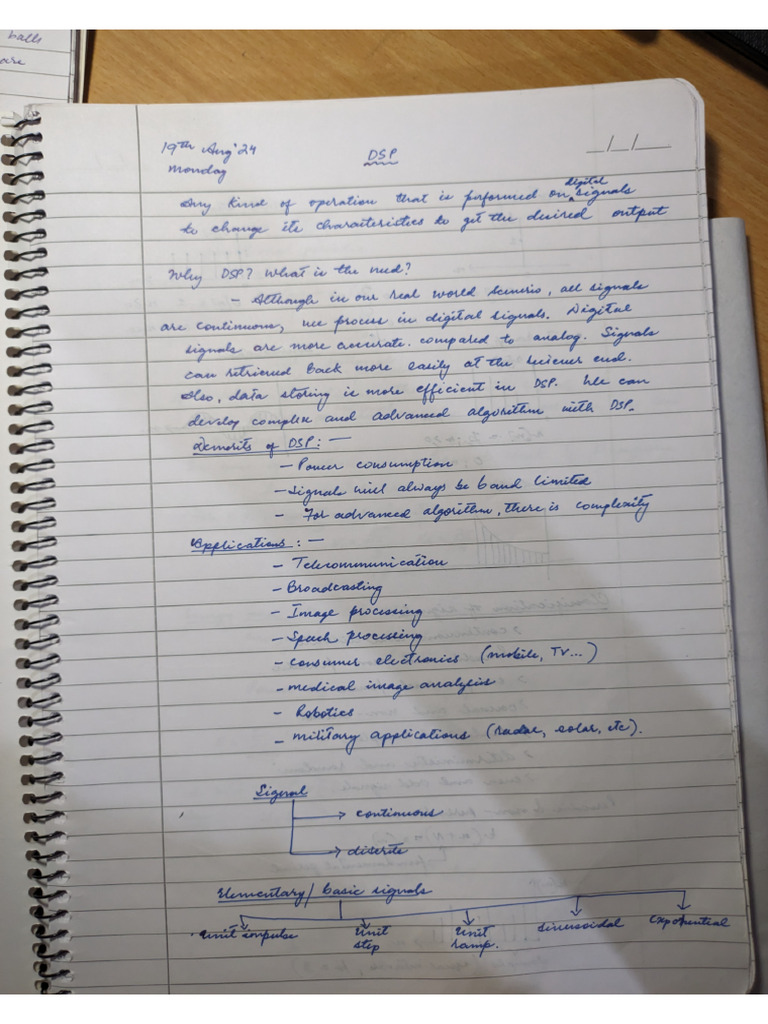 balls
are
19th Aug'24
DSP
_/_/_
Monday
Any kind of operation that is performed on digital signals
to change its characteristics to get the desired output
Why DSP? What is the need?
- Although in our real world scenerio, all signals
are continuous, we process in digital signals. Digital
signals are more accurate compared to analog. Signals
can retrieved back more easily at the reciever end.
Also, data storing is more efficient in DSP. We can
develop complex and advanced algorithm with DSP.
Demerits of DSP: -
- Power consumption
- Signals will always be band limited
- For advanced algorithm, there is complexity
Applications: -
- Telecommunication
- Broadcasting
- Image processing
- Speech processing
- Consumer electronics (mobile, TV...)
- medical image analysis
- Robotics
- military applications (radar, solar, etc).
Signal
→ continuous
→ discrete
Elementary/ basic signals
Unit impulse Unit step Unit ramp. Sinusoidal Exponential